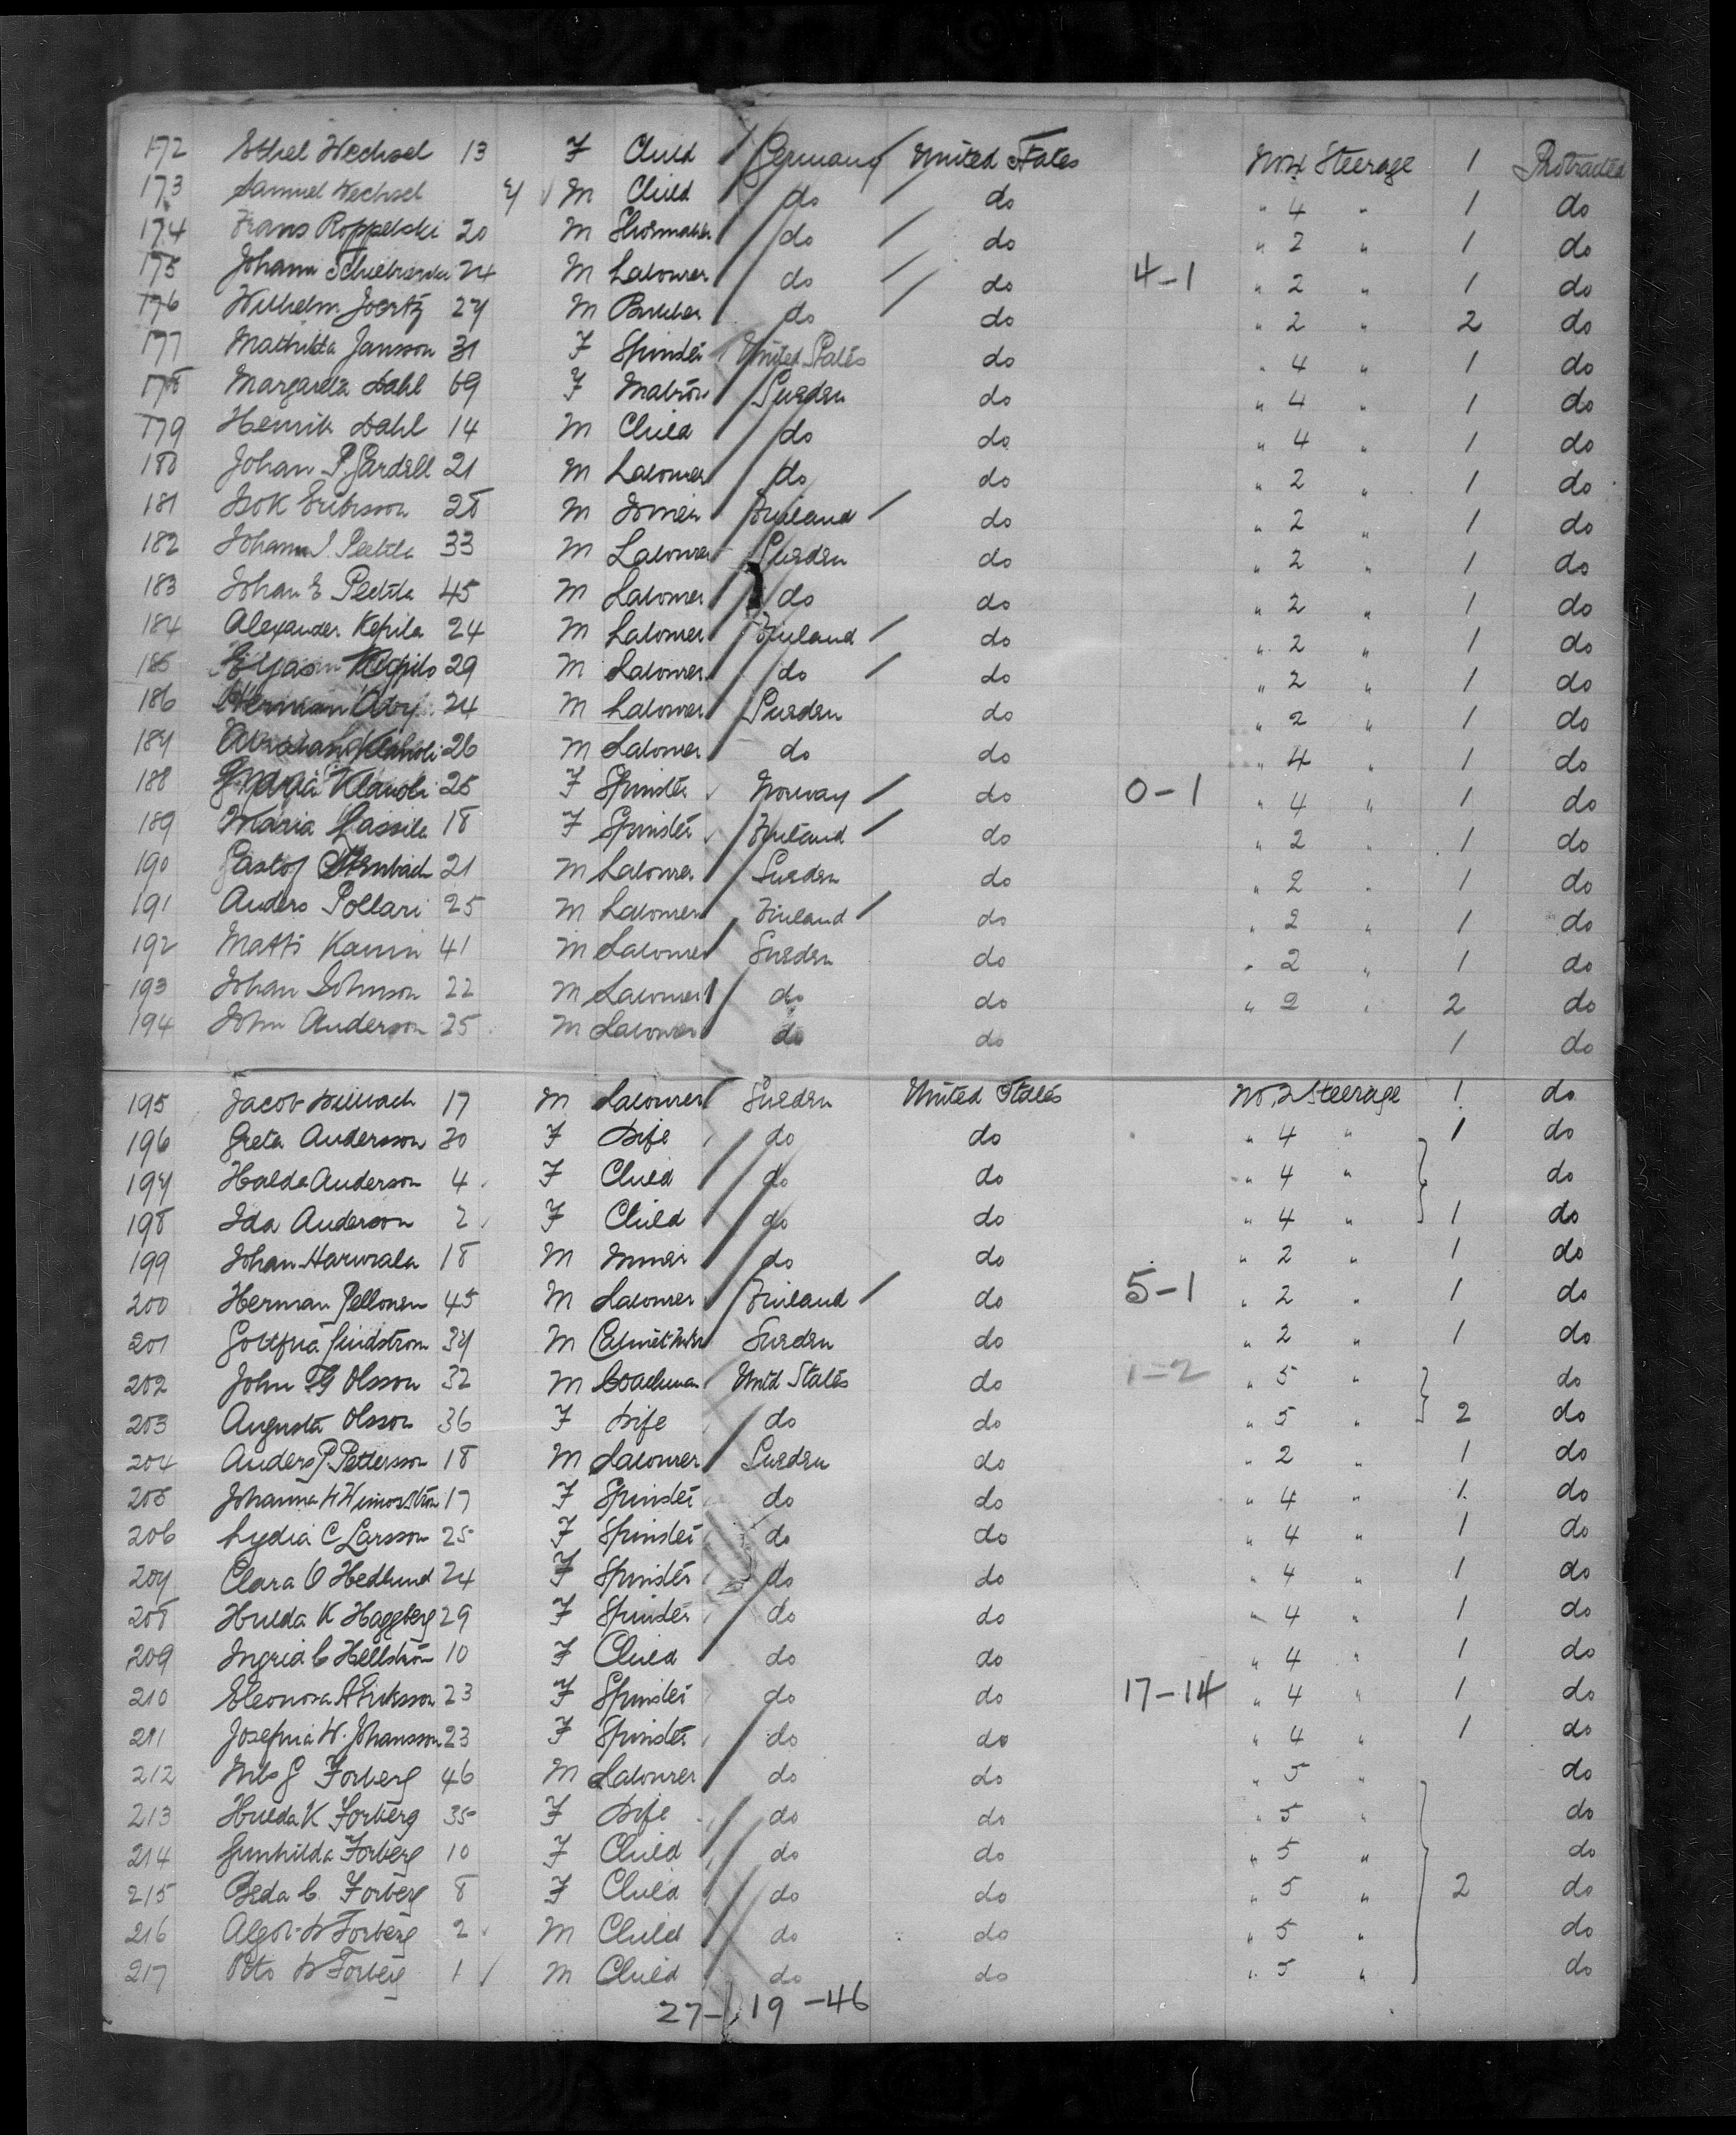 172 Ethel Wechsel 13 F Child Germany United States No 4 Steerage 1 Protracted
173 Samuel Wechsel M Child do do " 4 " 1 do
174 Frans Roppelski 20 M Shoemaker do do " 2 " 1 do
175 Johann 24 M Labourer do do 4-1 " 2 " 1 do
176 Wilhelm 27 M do do " 2 " 2 do
177 Mathilda Jansson 31 F Spinster United States do " 4 " 1 do
178 Margareta Dahl 69 F Matron Sweden do " 4 " 1 do
179 Henrik Dahl 14 M Child do do " 4 " 1 do
180 Johan P. Gardell 21 M Labourer do do " 2 " 1 do
181 Isak Eriksson 28 M Finland do " 2 " 1 do
182 Johann 33 M Labourer Sweden do " 2 " 1 do
183 Johan E 45 M Labourer do do " 2 " 1 do
184 Alexander Kepila 24 M Labourer Finland do " 2 " 1 do
185 29 M Labourer do do " 2 " 1 do
186 Herman 24 M Labourer Sweden do " 2 " 1 do
187 26 M Labourer do do " 4 " 1 do
188 25 F Spinster Norway do 0-1 " 4 " 1 do
189 Maria Lassila 18 F Spinster Finland do " 2 " 1 do
190 21 M Labourer Sweden do " 2 " 1 do
191 Anders Pollari 25 M Labourer Finland do " 2 " 1 do
192 Matti 41 M Labourer Sweden do " 2 " 1 do
193 Johan Johnson 22 M Labourer do do " 2 " 2 do
194 John Anderson 25 M Labourer do do 1 do
195 Jacob 17 M Labourer Sweden United States No 2 Steerage 1 do
196 Greta Andersson 30 F Wife do do " 4 " 1 do
197 Halda Anderson 4 F Child do do " 4 " do
198 Ida Anderson 2 F Child do do " 4 " 1 do
199 Johan 18 M Miner do do " 2 " 1 do
200 Herman Pellonen 45 M Labourer Finland do 5-1 " 2 " 1 do
201 Lindstrom 34 M Sweden do " 2 " 1 do
202 John Olsson 32 M Coachman Untd States do 1-2 " 5 " do
203 Augusta Olsson 36 F Wife do do " 5 " 2 do
204 Anders P. Pettersson 18 M Labourer Sweden do " 2 " 1 do
205 Johanna 17 F Spinster do do " 4 " 1 do
206 Lydia C Larsson 25 F Spinster do do " 4 " 1 do
207 Clara O Hedlund 24 F Spinster do do " 4 " 1 do
208 Hulda K Haggberg 29 F Spinster do do " 4 " 1 do
209 Ingrid C Hellström 10 F Child do do " 4 " 1 do
210 Eleonora A Eriksson 23 F Spinster do do 17-14 " 4 " 1 do
211 Josefina W. Johansson 23 F Spinster do do " 4 " 1 do
212 Nils G Forberg 46 M Labourer do do " 5 " do
213 Hulda K Forberg 35 F Wife do do " 5 " do
214 Gunhilda Forberg 10 F Child do do " 5 " do
215 Beda C. Forberg 8 F Child do do " 5 " 2 do
216 Algot W Forberg 2 M Child do do " 5 " do
217 Forberg 1 M Child do do " 5 " do
27-19-46